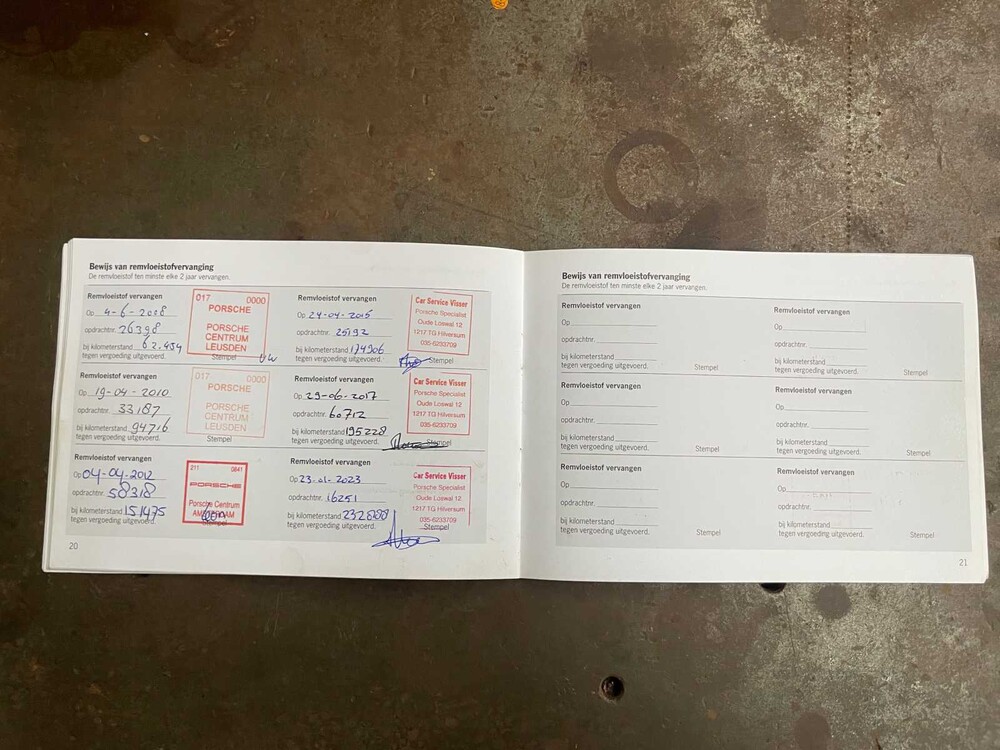 Bewijs van remvloeistofvervanging
De remvloeistof ten minste elke 2 jaar vervangen.
Remvloeistof vervangen
Op 4-6-2008
opdrachtnr. 26398
bij kilometerstand 62.434
tegen vergoeding uitgevoerd.
017 0000
PORSCHE
PORSCHE
CENTRUM
LEUSDEN
Stempel
Remvloeistof vervangen
Op 24-04-2015
opdrachtnr. 25192
bij kilometerstand 174906
tegen vergoeding uitgevoerd.
Car Service Visser
Porsche Specialist
Oude Loswal 12
1217 TG Hilversum
035-6233709
Stempel
Remvloeistof vervangen
Op 19-04-2010
opdrachtnr. 33187
bij kilometerstand 94716
tegen vergoeding uitgevoerd.
017 0000
PORSCHE
PORSCHE
CENTRUM
LEUSDEN
Stempel
Remvloeistof vervangen
Op 29-06-2017
opdrachtnr. 60712
bij kilometerstand 195228
tegen vergoeding uitgevoerd.
Car Service Visser
Porsche Specialist
Oude Loswal 12
1217 TG Hilversum
035-6233709
Stempel
Remvloeistof vervangen
Op 04-04-2012
opdrachtnr. 58318
bij kilometerstand 151475
tegen vergoeding uitgevoerd.
211 0841
PORSCHE
Porsche Centrum
AMSTERDAM
Stempel
Remvloeistof vervangen
Op 23-01-2023
opdrachtnr. 16251
bij kilometerstand
tegen vergoeding uitgevoerd.
Car Service Visser
Porsche Specialist
Oude Loswal 12
1217 TG Hilversum
035-6233709
Stempel
20
Bewijs van remvloeistofvervanging
De remvloeistof ten minste elke 2 jaar vervangen.
Remvloeistof vervangen
Op
opdrachtnr.
bij kilometerstand
tegen vergoeding uitgevoerd.
Stempel
Remvloeistof vervangen
Op
opdrachtnr.
bij kilometerstand
tegen vergoeding uitgevoerd.
Stempel
Remvloeistof vervangen
Op
opdrachtnr.
bij kilometerstand
tegen vergoeding uitgevoerd.
Stempel
Remvloeistof vervangen
Op
opdrachtnr.
bij kilometerstand
tegen vergoeding uitgevoerd.
Stempel
Remvloeistof vervangen
Op
opdrachtnr.
bij kilometerstand
tegen vergoeding uitgevoerd.
Stempel
Remvloeistof vervangen
Op
opdrachtnr.
bij kilometerstand
tegen vergoeding uitgevoerd.
Stempel
21